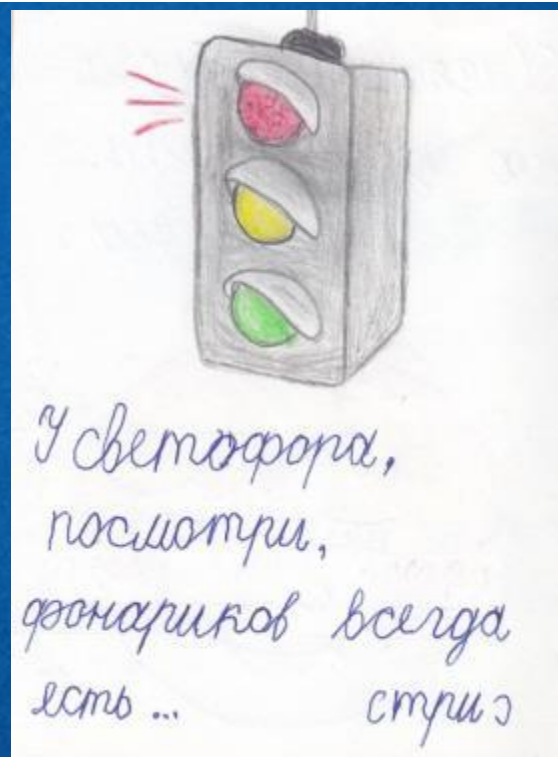 У светофора,
посмотри,
фонариков всегда
есть...